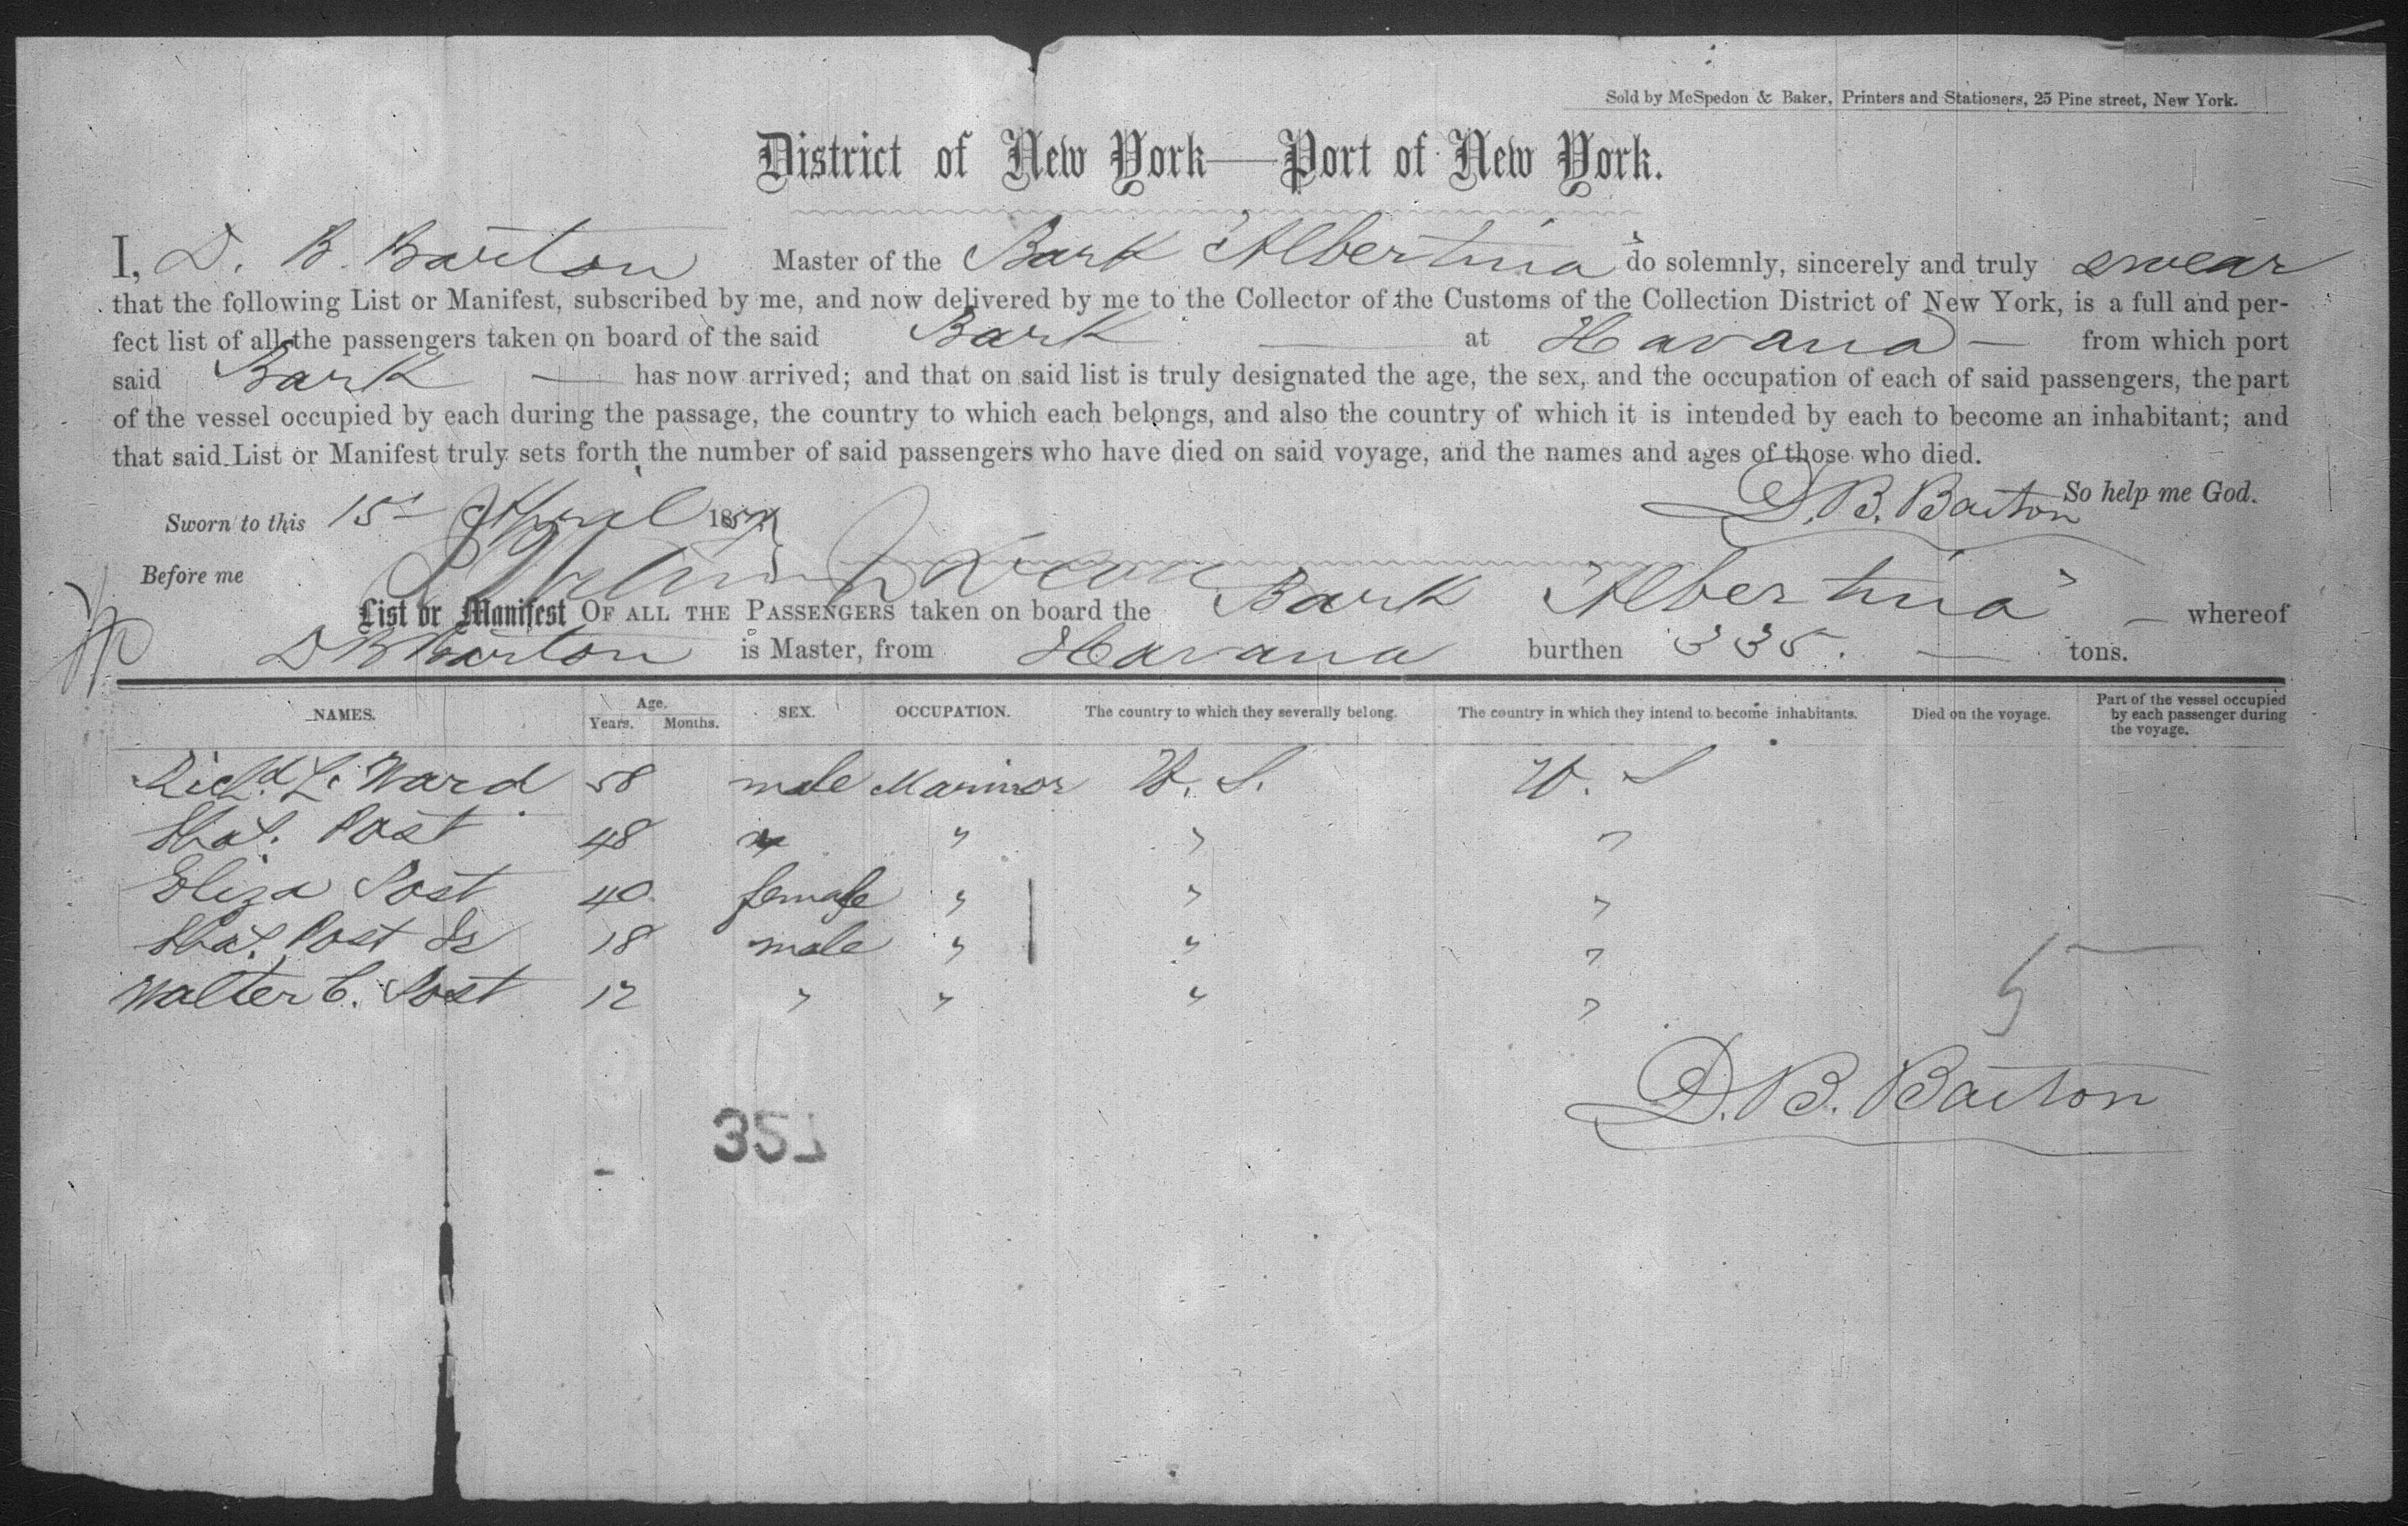 Sold by McSpedon & Baker, Printers and Stationers, 25 Pine street, New York.
District of New York—Port of New York.
I, D. B. Barton Master of the Bark "Albertina" do solemnly, sincerely and truly swear
that the following List or Manifest, subscribed by me, and now delivered by me to the Collector of the Customs of the Collection District of New York, is a full and per-
fect list of all the passengers taken on board of the said Bark — at Havana — from which port
said Bark — has now arrived; and that on said list is truly designated the age, the sex, and the occupation of each of said passengers, the part
of the vessel occupied by each during the passage, the country to which each belongs, and also the country of which it is intended by each to become an inhabitant; and
that said List or Manifest truly sets forth the number of said passengers who have died on said voyage, and the names and ages of those who died.
D. B. Barton So help me God.
Sworn to this 15 April 185
Before me
List or Manifest OF ALL THE PASSENGERS taken on board the Bark "Albertina" — whereof
D B Barton is Master, from Havana burthen 335. — tons.
NAMES. Age. Years. Months. SEX. OCCUPATION. The country to which they severally belong. The country in which they intend to become inhabitants. Died on the voyage. Part of the vessel occupied by each passenger during the voyage.
Richd. L. Ward 58 male Marinor U. S. U. S
Post 48 " " " 
Eliza Post 40 female " " "
Post Jr 18 male " " "
Walter C. Post 12 " " " "
5
D. B. Barton
351